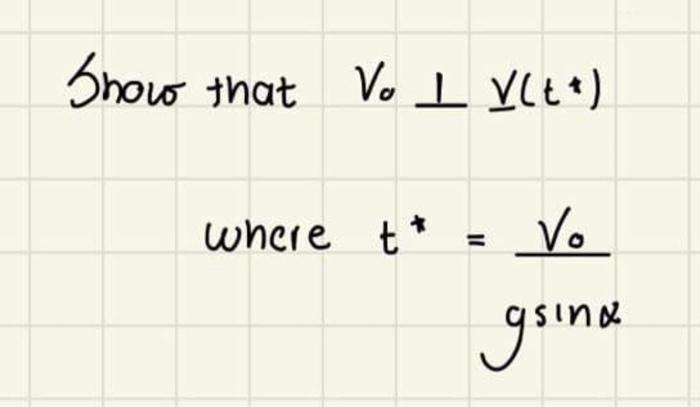 Show that V₀ ⊥ V(t*)
where t* = V₀
g sinα